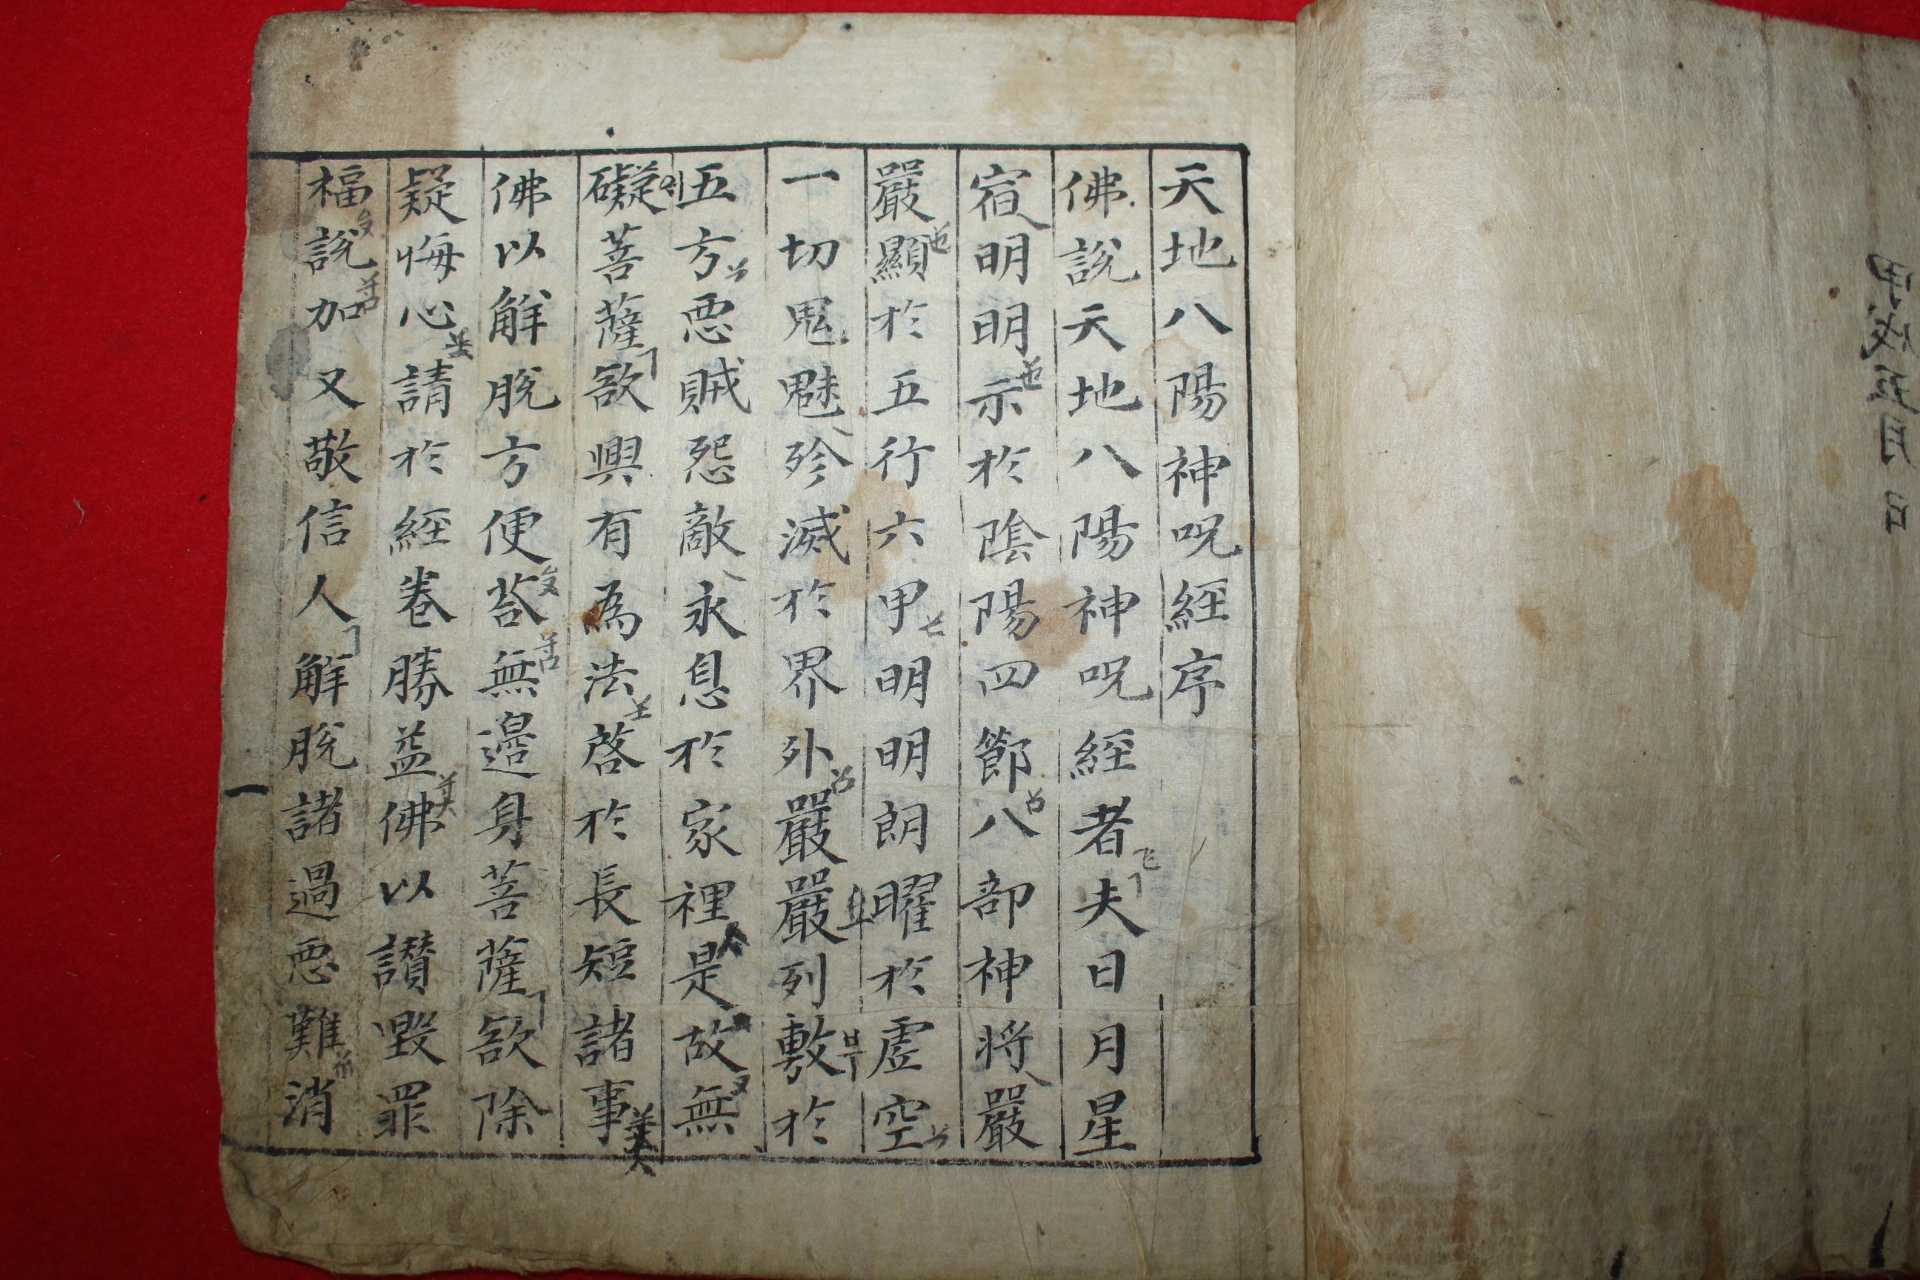 甲戌五月 日
天地八陽神呪經序
佛說天地八陽神呪經者夫日月星
宿明明示於陰陽四節八部神將嚴
嚴顯於五行六甲明明朗曜於虛空
一切鬼魅殄滅於界外嚴嚴列敷於
五方惡賊怨敵永息於家裡是故無
礙菩薩欲興有為法啓於長短諸事
佛以解脫方便荅無邉身菩薩欲除
疑悔心請於經卷勝益佛以讃毀罪
福說加又敬信人解脫諸過惡難消
一